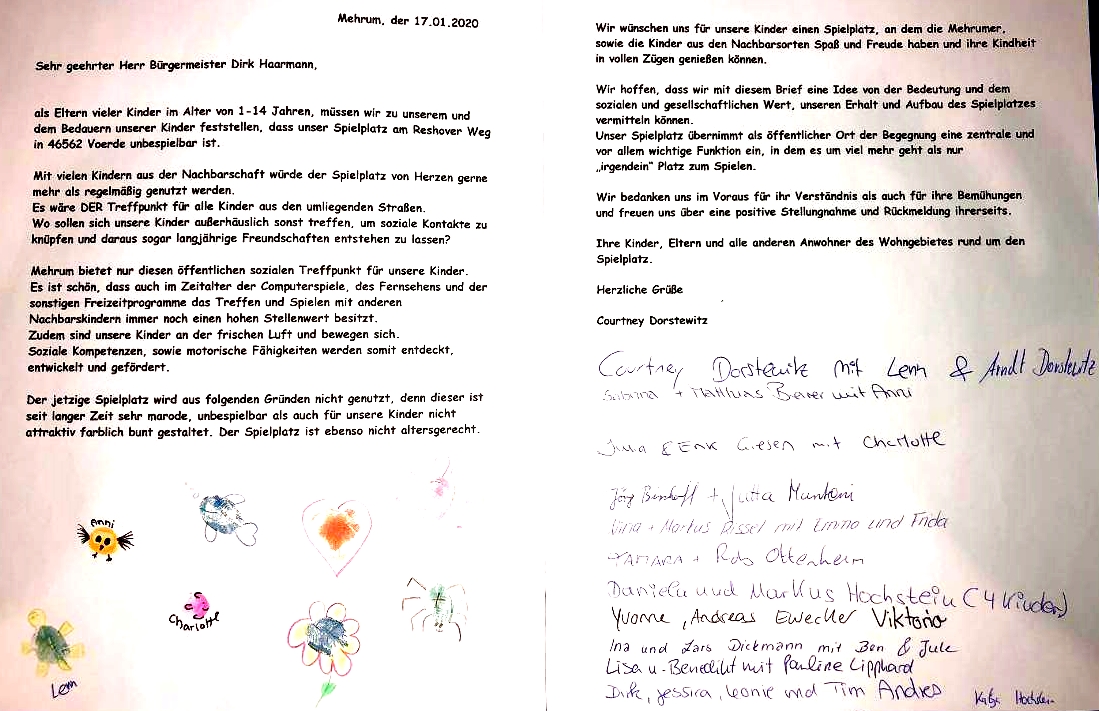 Mehrum, der 17.01.2020
Sehr geehrter Herr Bürgermeister Dirk Haarmann,
als Eltern vieler Kinder im Alter von 1-14 Jahren, müssen wir zu unserem und
dem Bedauern unserer Kinder feststellen, dass unser Spielplatz am Reshover Weg
in 46562 Voerde unbespielbar ist.
Mit vielen Kindern aus der Nachbarschaft würde der Spielplatz von Herzen gerne
mehr als regelmäßig genutzt werden.
Es wäre DER Treffpunkt für alle Kinder aus den umliegenden Straßen.
Wo sollen sich unsere Kinder außerhäuslich sonst treffen, um soziale Kontakte zu
knüpfen und daraus sogar langjährige Freundschaften entstehen zu lassen?
Mehrum bietet nur diesen öffentlichen sozialen Treffpunkt für unsere Kinder.
Es ist schön, dass auch im Zeitalter der Computerspiele, des Fernsehens und der
sonstigen Freizeitprogramme das Treffen und Spielen mit anderen
Nachbarskindern immer noch einen hohen Stellenwert besitzt.
Zudem sind unsere Kinder an der frischen Luft und bewegen sich.
Soziale Kompetenzen, sowie motorische Fähigkeiten werden somit entdeckt,
entwickelt und gefördert.
Der jetzige Spielplatz wird aus folgenden Gründen nicht genutzt, denn dieser ist
seit langer Zeit sehr marode, unbespielbar als auch für unsere Kinder nicht
attraktiv farblich bunt gestaltet. Der Spielplatz ist ebenso nicht altersgerecht.
Anni
Charlotte
Lenn
Wir wünschen uns für unsere Kinder einen Spielplatz, an dem die Mehrumer,
sowie die Kinder aus den Nachbarsorten Spaß und Freude haben und ihre Kindheit
in vollen Zügen genießen können.
Wir hoffen, dass wir mit diesem Brief eine Idee von der Bedeutung und dem
sozialen und gesellschaftlichen Wert, unseren Erhalt und Aufbau des Spielplatzes
vermitteln können.
Unser Spielplatz übernimmt als öffentlicher Ort der Begegnung eine zentrale und
vor allem wichtige Funktion ein, in dem es um viel mehr geht als nur
„irgendein" Platz zum Spielen.
Wir bedanken uns im Voraus für ihr Verständnis als auch für ihre Bemühungen
und freuen uns über eine positive Stellungnahme und Rückmeldung ihrerseits.
Ihre Kinder, Eltern und alle anderen Anwohner des Wohngebietes rund um den
Spielplatz.
Herzliche Grüße
Courtney Dorstewitz
Courtney Dorstewitz mit Lenn & Arndt Dorstewitz
+ Matthias mit Anni
Giesen mit Charlotte
Jörg + Jutta
+ Markus mit Emma und Frida
TAMARA + Rob Ottenheim
Daniela und Markus Hochstein (4 Kinder)
Yvonne, Andreas Viktoria
Ina und Lars Dickmann mit Ben & Jule
Lisa u. Benedikt mit Pauline Lipphard
Dirk, Jessica, Leonie und Tim Andres
Katja Hochstein